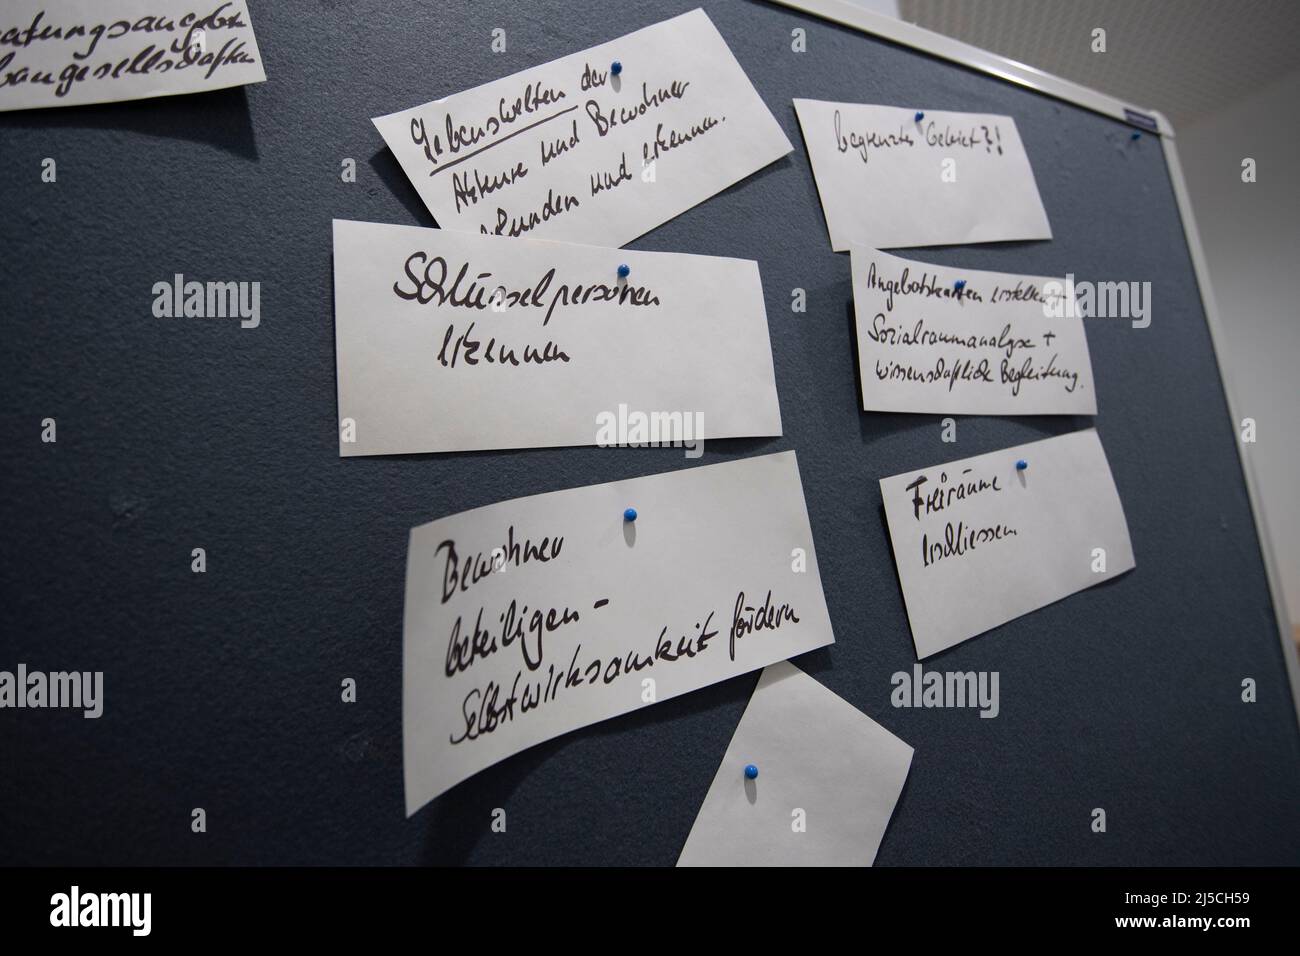 baugesellschaften
Lebenswelten der
Akteure und Bewohner
erkunden und erkennen.
begrenztes Gebiet?!
Schlüsselpersonen
erkennen
Angebotskarten erstellen +
Sozialraumanalyse +
wissenschaftliche Begleitung.
Bewohner
beteiligen -
Selbstwirksamkeit fördern
Freiräume
erschliessen
alamy
alamy
alamy
alamy
alamy
alamy
Image ID: 2J5CH59
www.alamy.com